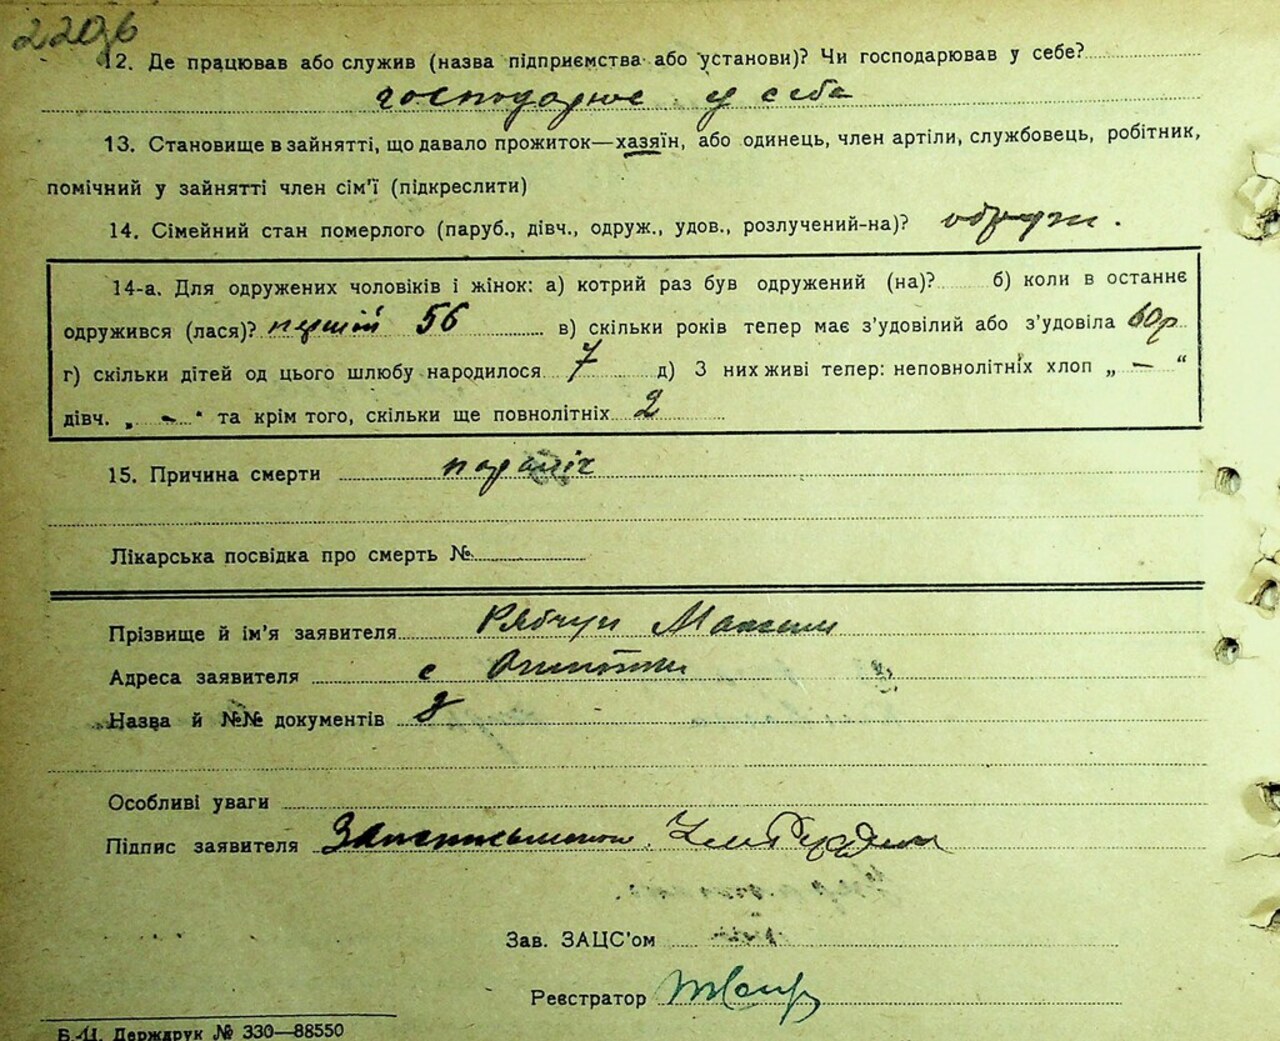 220
12. Де працював або служив (назва підприємства або установи)? Чи господарював у себе?
господарює у себе
13. Становище в зайнятті, що давало прожиток—хазяїн, або одинець, член артіли, службовець, робітник,
помічний у зайнятті член сім'ї (підкреслити)
14. Сімейний стан померлого (паруб., дівч., одруж., удов., розлучений-на)? одруж.
14-а. Для одружених чоловіків і жінок: а) котрий раз був одружений (на)? б) коли в останнє
одружився (лася)? перший 56 в) скільки років тепер має з'удовілий або з'удовіла 60 р
г) скільки дітей од цього шлюбу народилося 7 д) З них живі тепер: неповнолітніх хлоп „ — “
дівч. „ - “ та крім того, скільки ще повнолітніх 2
15. Причина смерти параліч
Лікарська посвідка про смерть №
Прізвище й ім'я заявителя Рябчун Максим
Адреса заявителя с
Назва й №№ документів
Особливі уваги
Підпис заявителя
Зав. ЗАЦС'ом
Реєстратор
Б.-Ц. Держдрук № 330—88550